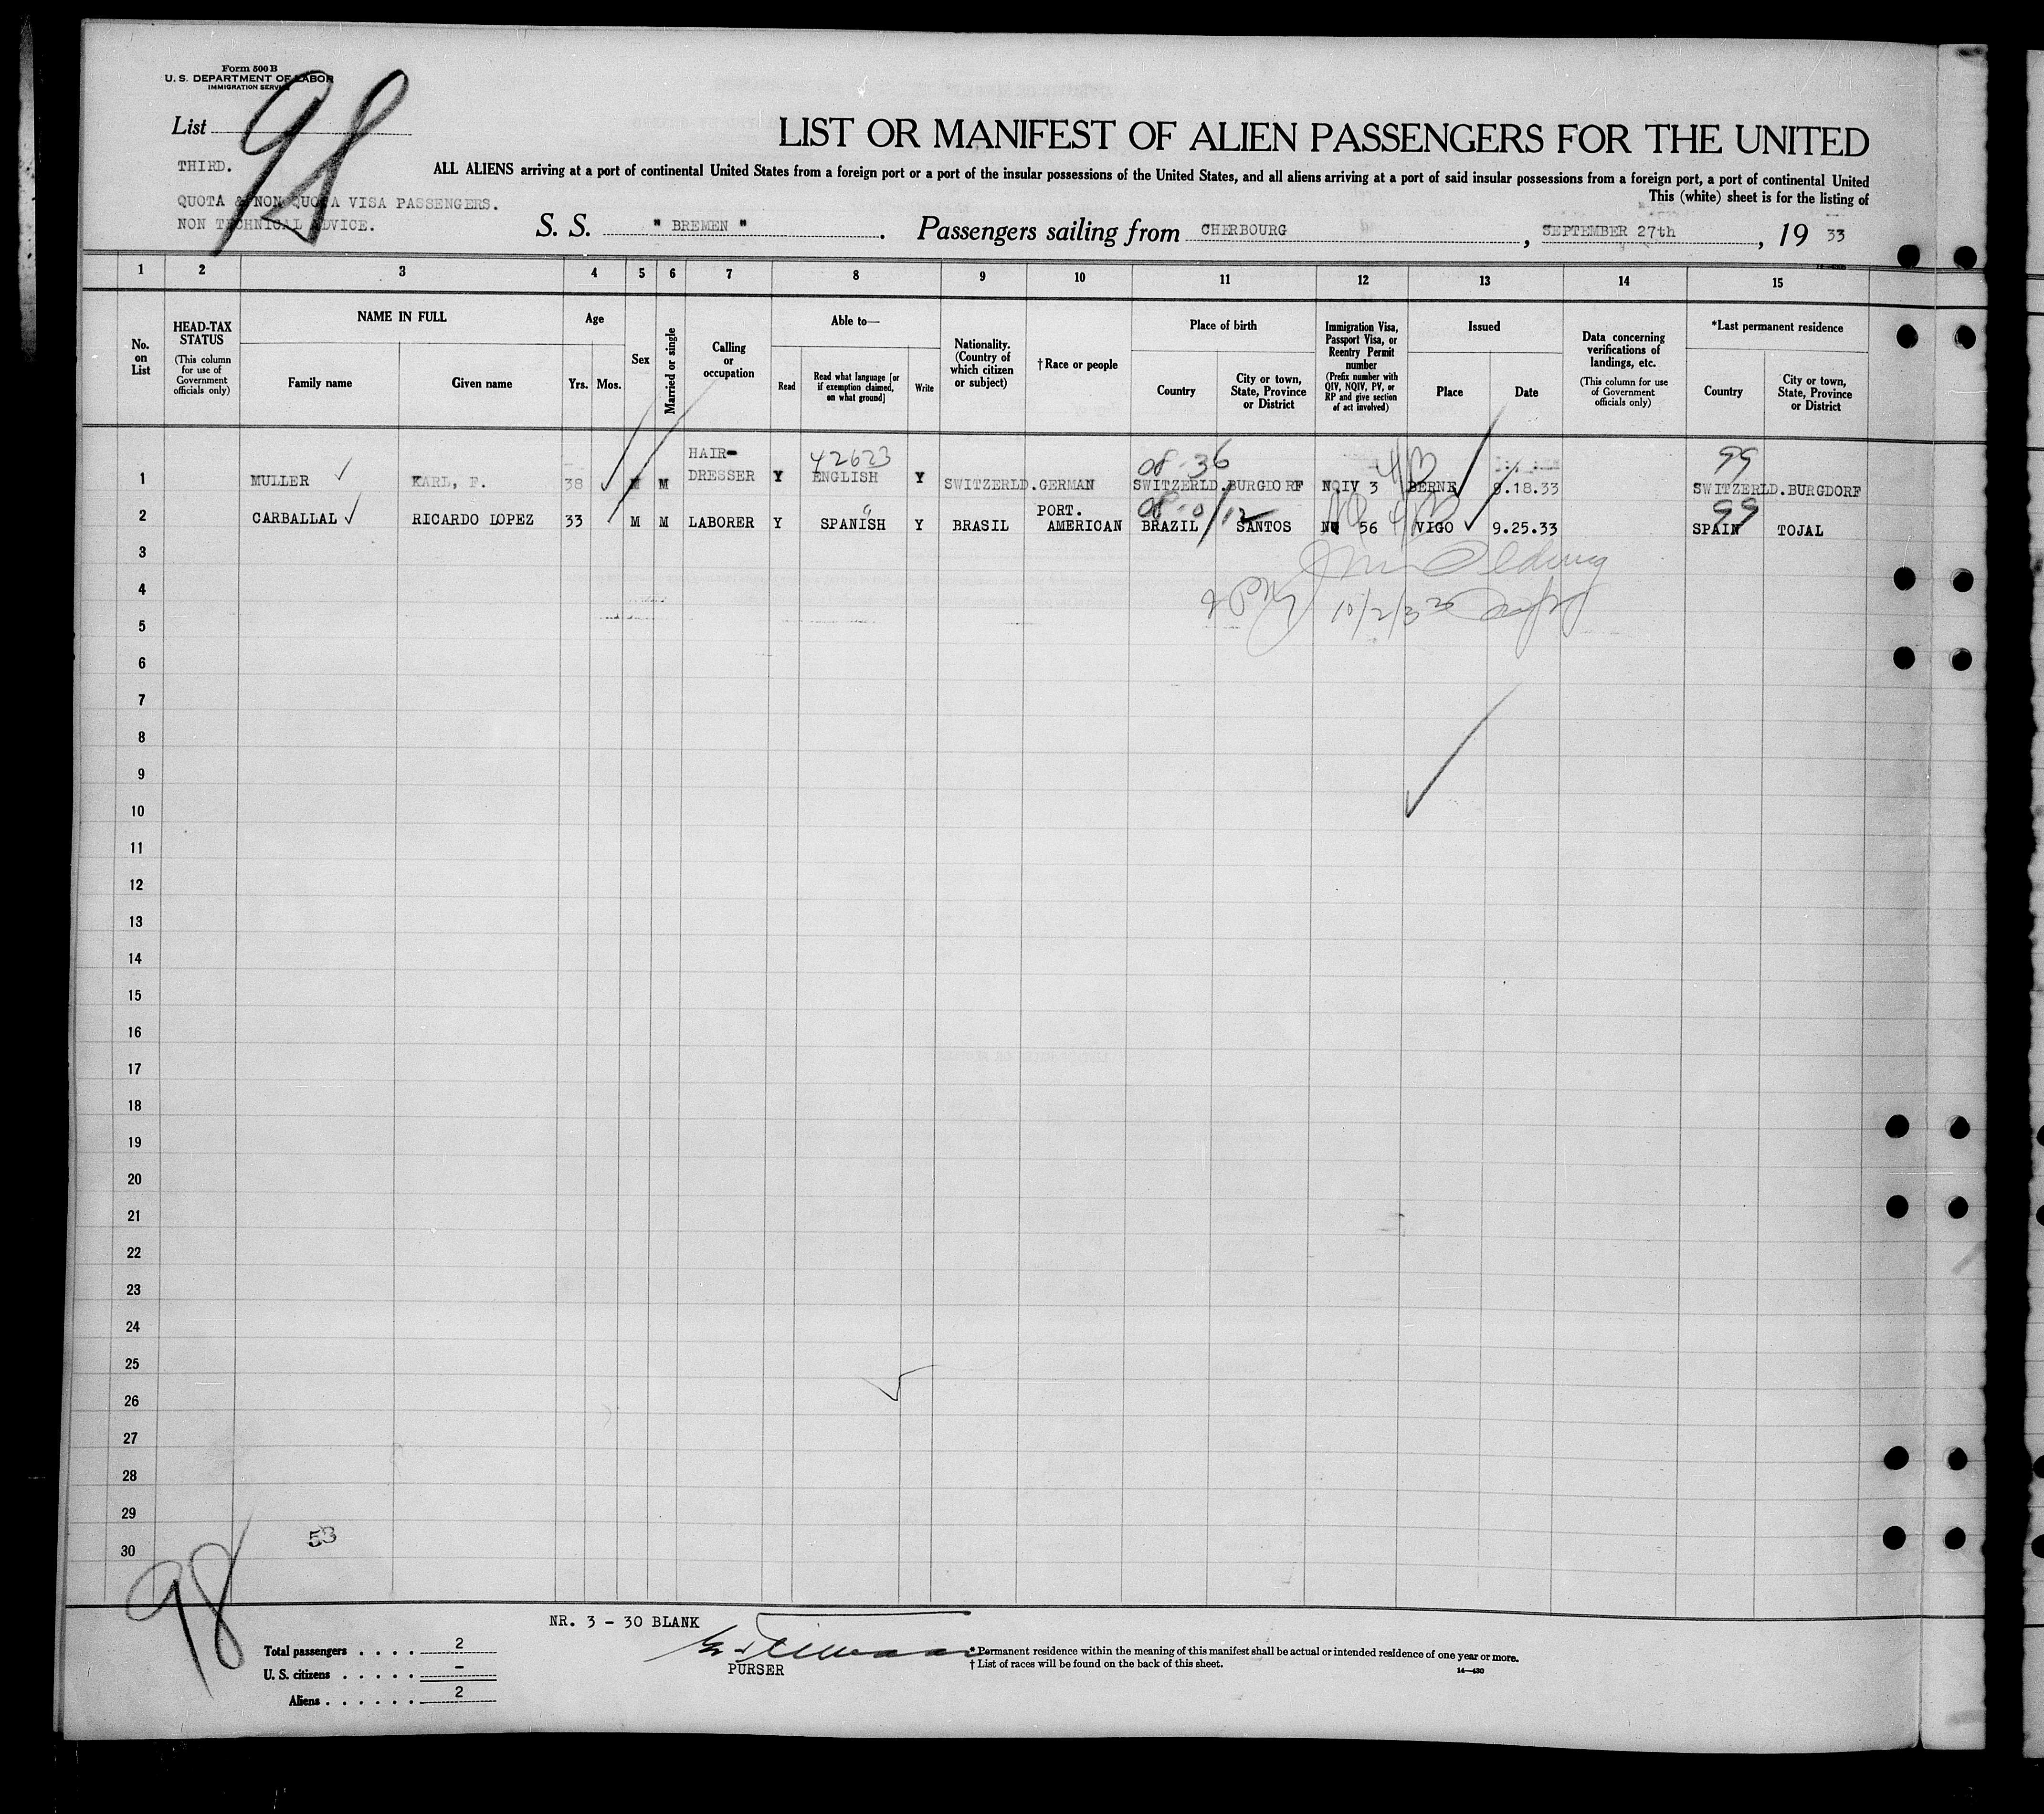 Form 500 B
U. S. DEPARTMENT OF LABOR
IMMIGRATION SERVICE
List 98
THIRD.
QUOTA & NON QUOTA VISA PASSENGERS.
NON TECHNICAL ADVICE.
LIST OR MANIFEST OF ALIEN PASSENGERS FOR THE UNITED
ALL ALIENS arriving at a port of continental United States from a foreign port or a port of the insular possessions of the United States, and all aliens arriving at a port of said insular possessions from a foreign port, a port of continental United
This (white) sheet is for the listing of
S. S. " BREMEN " . Passengers sailing from CHERBOURG , SEPTEMBER 27th , 19 33
1 2 3 4 5 6 7 8 9 10 11 12 13 14 15
No. on List
HEAD-TAX STATUS
(This column for use of Government officials only)
NAME IN FULL
Family name
Given name
Age
Yrs. Mos.
Sex
Married or single
Calling or occupation
Able to—
Read
Read what language [or if exemption claimed, on what ground]
Write
Nationality. (Country of which citizen or subject)
† Race or people
Place of birth
Country
City or town, State, Province or District
Immigration Visa, Passport Visa, or Reentry Permit number
(Prefix number with QIV, NQIV, PV, or RP and give section of act involved)
Issued
Place
Date
Data concerning verifications of landings, etc.
(This column for use of Government officials only)
*Last permanent residence
Country
City or town, State, Province or District
42623 08-36 4B 99
1 MULLER KARL, F. 38 M M HAIR-DRESSER Y ENGLISH Y SWITZERLD. GERMAN SWITZERLD. BURGDORF NQIV 3 BERNE 9.18.33 SWITZERLD. BURGDORF
08-0/12 99
2 CARBALLAL RICARDO LOPEZ 33 M M LABORER Y SPANISH Y BRASIL PORT. AMERICAN BRAZIL SANTOS NQ 56 VIGO 9.25.33 SPAIN TOJAL
3
4 10/2/33
5
6
7
8
9
10
11
12
13
14
15
16
17
18
19
20
21
22
23
24
25
26
27
28
29
53
30
98
NR. 3 - 30 BLANK
Total passengers . . . . 2
U. S. citizens . . . . . –
Aliens . . . . . . 2
PURSER
* Permanent residence within the meaning of this manifest shall be actual or intended residence of one year or more.
† List of races will be found on the back of this sheet.
14—430